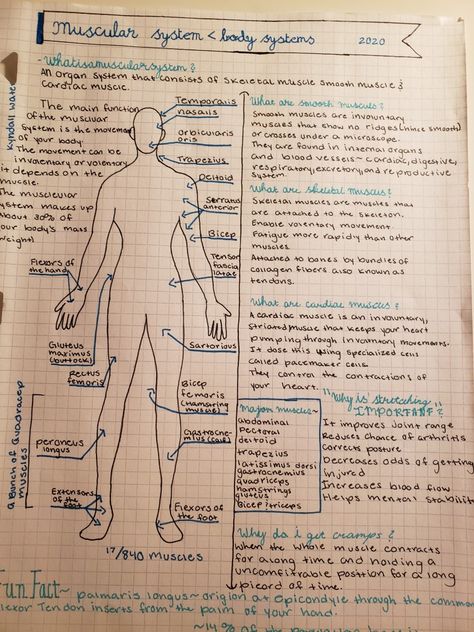 Muscular system < body systems 2020
Kyndall
- What is a muscular system?
An organ system that consists of skeletal muscle smooth muscle &
cardiac muscle.
The main function
of the muscular
system is the movement
of your body.
The movement can be
involentary or volentary
it depends on the
muscle.
The musclular
system makes up
about 30% of
our body's mass
weight)
Temporalis
nasails
orbicularis
oris
Trapezius
Deltoid
Serratus
anterior
Bicep
Tensor
fascia
latae
Flexors of
the hand
Gluteus
maximus
(buttock)
rectus
femoris
Sartorious
Bicep
femoris
(hamsring
muscle)
Gastrocne-
mius (calf)
A Bunch of Quadracep
muscles
peroneus
longus
Extensors
of the
foot
Flexors of
the foot
17/840 Muscles
What are smooth muscles?
Smooth muscles are involuntary
muscles that show no ridges (hince smooth)
or crosses under a microscope.
They are found in internal organs
and blood vessels~ cardiac, digestive,
respiratory, excretory, and reproductive
system
What are skeletal muscles?
Skeletal muscles are muscles that
are attached to the skeleton.
Enable voventary movement.
Fatigue more rapidly than other
muscles
Attached to bones by bundles of
collagen fibers also known as
tendons.
What are cardiac muscles?
A cardiac muscle is an involuntary,
striated muscle that keeps your heart
pumping through involentary movements.
It dose this using specialized cells
called pacemaker cells
They control the contractions of
your heart.
Major muscles~
abdominal
pectoral
deltoid
trapezius
latissimus dorsi
gastrocnemius
quadriceps
hamstrings
gluteus
Bicep/triceps
"Why is stretching
IMPORTANT?"
It improves Joint range
Reduces chance of arthritis
corrects posture
Decreases odds of getting
injured
Increases blood flow
Helps mental stability
Why do i get cramps?
When the whole muscle contracts
for a long time and holding a
uncomfitrable position for a long
picord of time.
Fun Fact~ palmaris longus~ origion at Epicondyle through the common
flexor Tendon inserts from the palm of your hand.
~14% of the